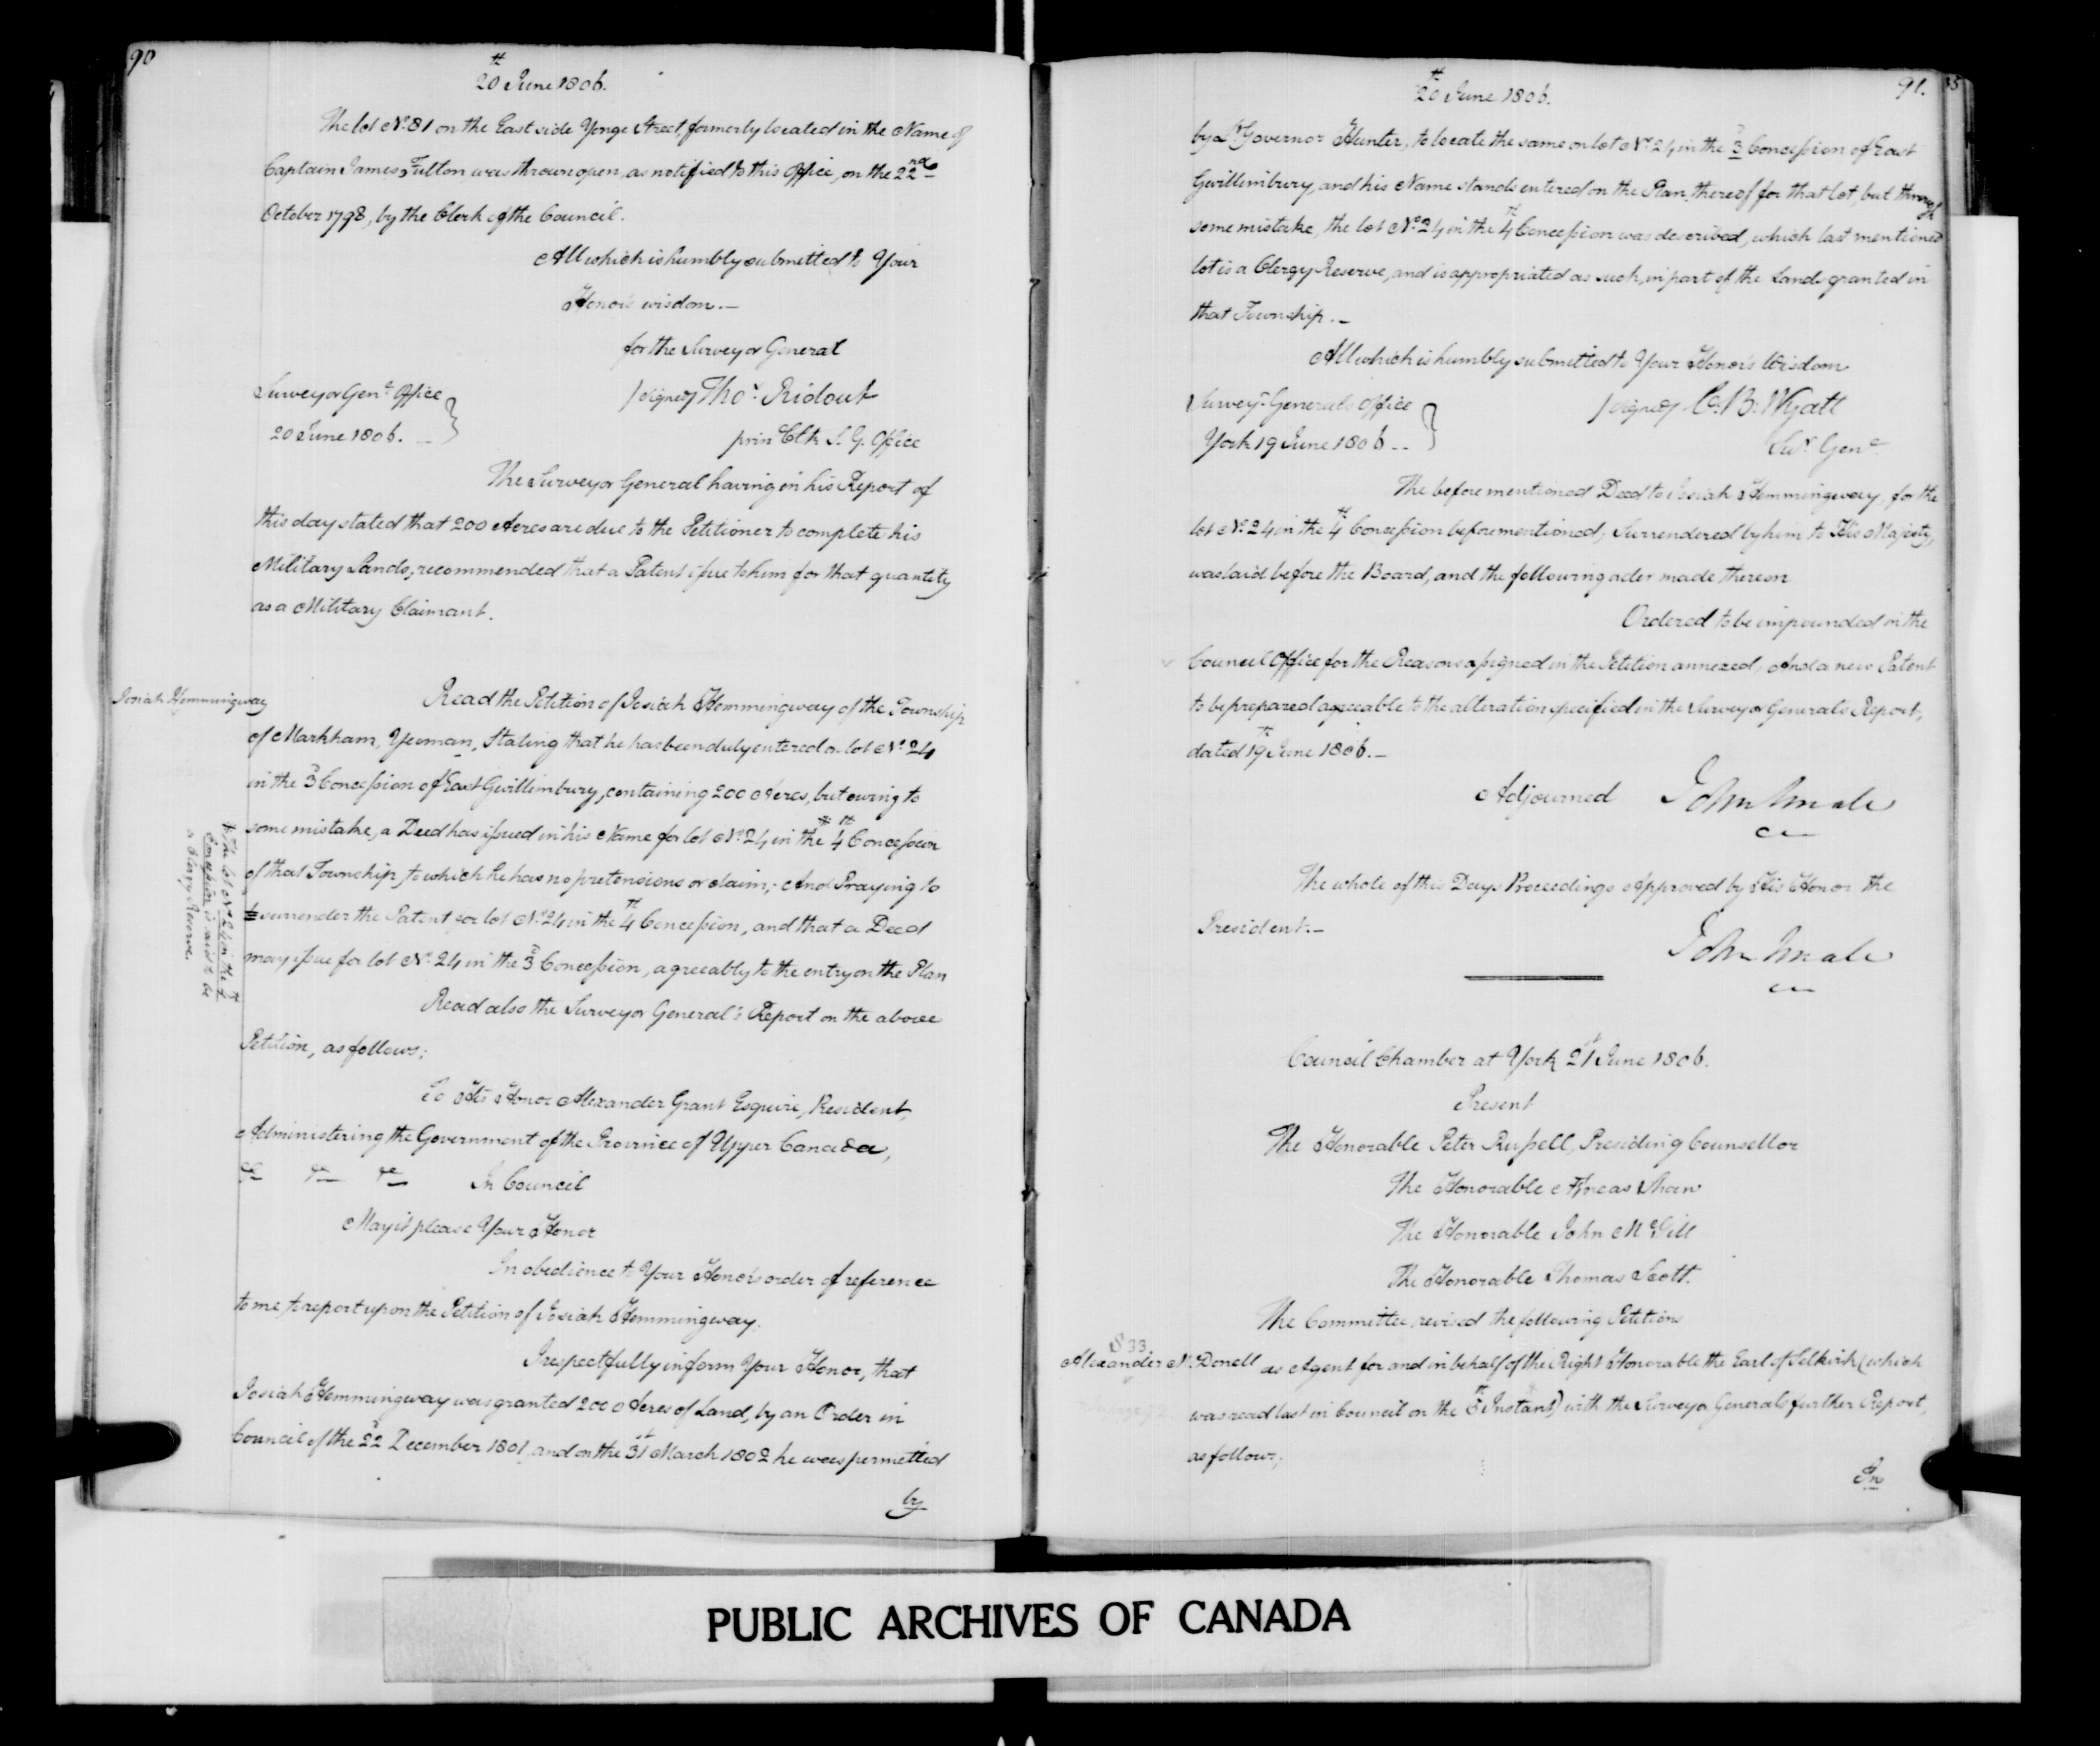 90
20th June 1806.
The lot No. 81 on the East side Yonge Street, formerly located in the Name of
Captain James Fulton was thrown open, as notified to this Office, on the 22nd
October 1798, by the Clerk of the Council.
All which is humbly submitted to Your
Honor's wisdom.—
for the Surveyor General
Surveyor Genl Office
(signed) Thos Ridout
20 June 1806. —
prin Clk S. G. Office
The Surveyor General having in his Report of
this day stated that 200 Acres are due to the Petitioner to complete his
Military Lands, recommended that a Patent issue to him for that quantity
as a Military Claimant.
Josiah Hemmingway
Read the Petition of Josiah Hemmingway of the Township
of Markham, Yeoman, Stating that he has been duly entered on lot No. 24
in the 3d Concession of East Gwillimbury, containing 200 Acres, but owing to
some mistake, a Deed has issued in his Name for lot No. 24 in the # 4th Concession
of that Township, to which he has no pretensions or claim; And Praying to
surrender the Patent for lot No. 24 in the 4th Concession, and that a Deed
may issue for lot No. 24 in the 3d Concession, agreeably to the entry on the Plan
# The lot No. 24 in the 4th
Concession is said to be
a Clergy Reserve.
Read also the Surveyor General's Report on the above
Petition, as follows;
To His Honor Alexander Grant Esquire, President,
Administering the Government of the Province of Upper Canada,
&c &c &c In Council
May it please Your Honor
In obedience to Your Honor's order of reference
to me, to report upon the Petition of Josiah Hemmingway.
I respectfully inform Your Honor, that
Josiah Hemmingway was granted 200 Acres of Land, by an Order in
Council of the 22d December 1801, and on the 31st March 1802 he was permitted
by
20th June 1806.
91.
by Lt Governor Hunter, to locate the same on lot No. 24 in the 3d Concession of East
Gwillimbury, and his Name stands entered on the Plan thereof for that lot, but through
some mistake, the lot No. 24 in the 4th Concession was described, which last mentioned
lot is a Clergy Reserve, and is appropriated as such, in part of the Lands granted in
that Township.—
All which is humbly submitted to Your Honor's Wisdom
Surveyr Generals Office
(signed) C. B. Wyatt
York 19 June 1806 --
Sur. Genl
The before mentioned Deed to Josiah Hemmingway, for the
lot No. 24 in the 4th Concession before mentioned, Surrendered by him to His Majesty,
was laid before the Board, and the following order made thereon
Ordered to be impounded in the
Council Office for the Reasons assigned in the Petition annexed, And a new Patent
to be prepared agreeable to the alteration specified in the Surveyor Generals Report,
dated 19th June 1806.—
Adjourned John Small
CC
The whole of this Days Proceedings Approved by His Honor the
President.—
John Small
CC
Council Chamber at York 21st June 1806.
Present
The Honorable Peter Russell, Presiding Counsellor
The Honorable Æneas Shaw
The Honorable John McGill
The Honorable Thomas Scott.
The Committee revised the following Petitions
Alexander McDonell as Agent for and in behalf of the Right Honorable the Earl of Selkirk (which
was read last in Council on the Instant) with the Surveyor Generals further Report,
as follows;
In
PUBLIC ARCHIVES OF CANADA